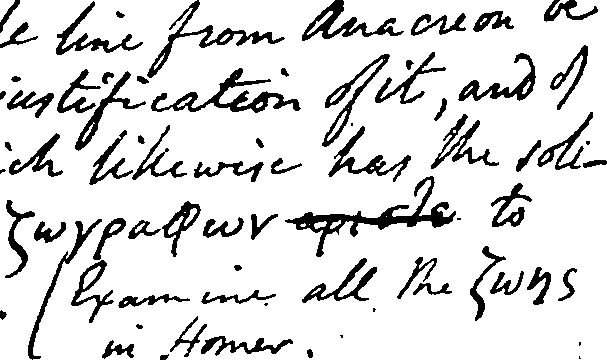 line from Anacreon be
justification of it, and of
ich likewise has the soli-
ζωγραφων αριστε to
(Examine all the ζωης
in Homer.